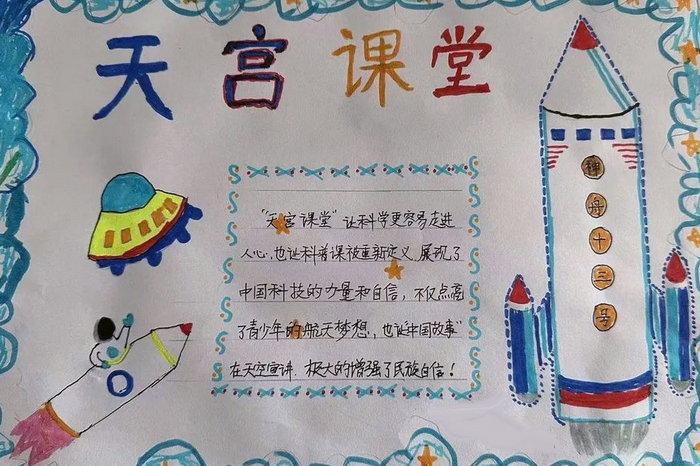 天宫课堂
"天宫课堂"让科学更容易走进
人心,也让科普课被重新定义,展现了
中国科技的力量和自信,不仅点亮
了青少年的航天梦想,也让"中国故事"
在天空宣讲,极大的增强了民族自信!
神舟十三号